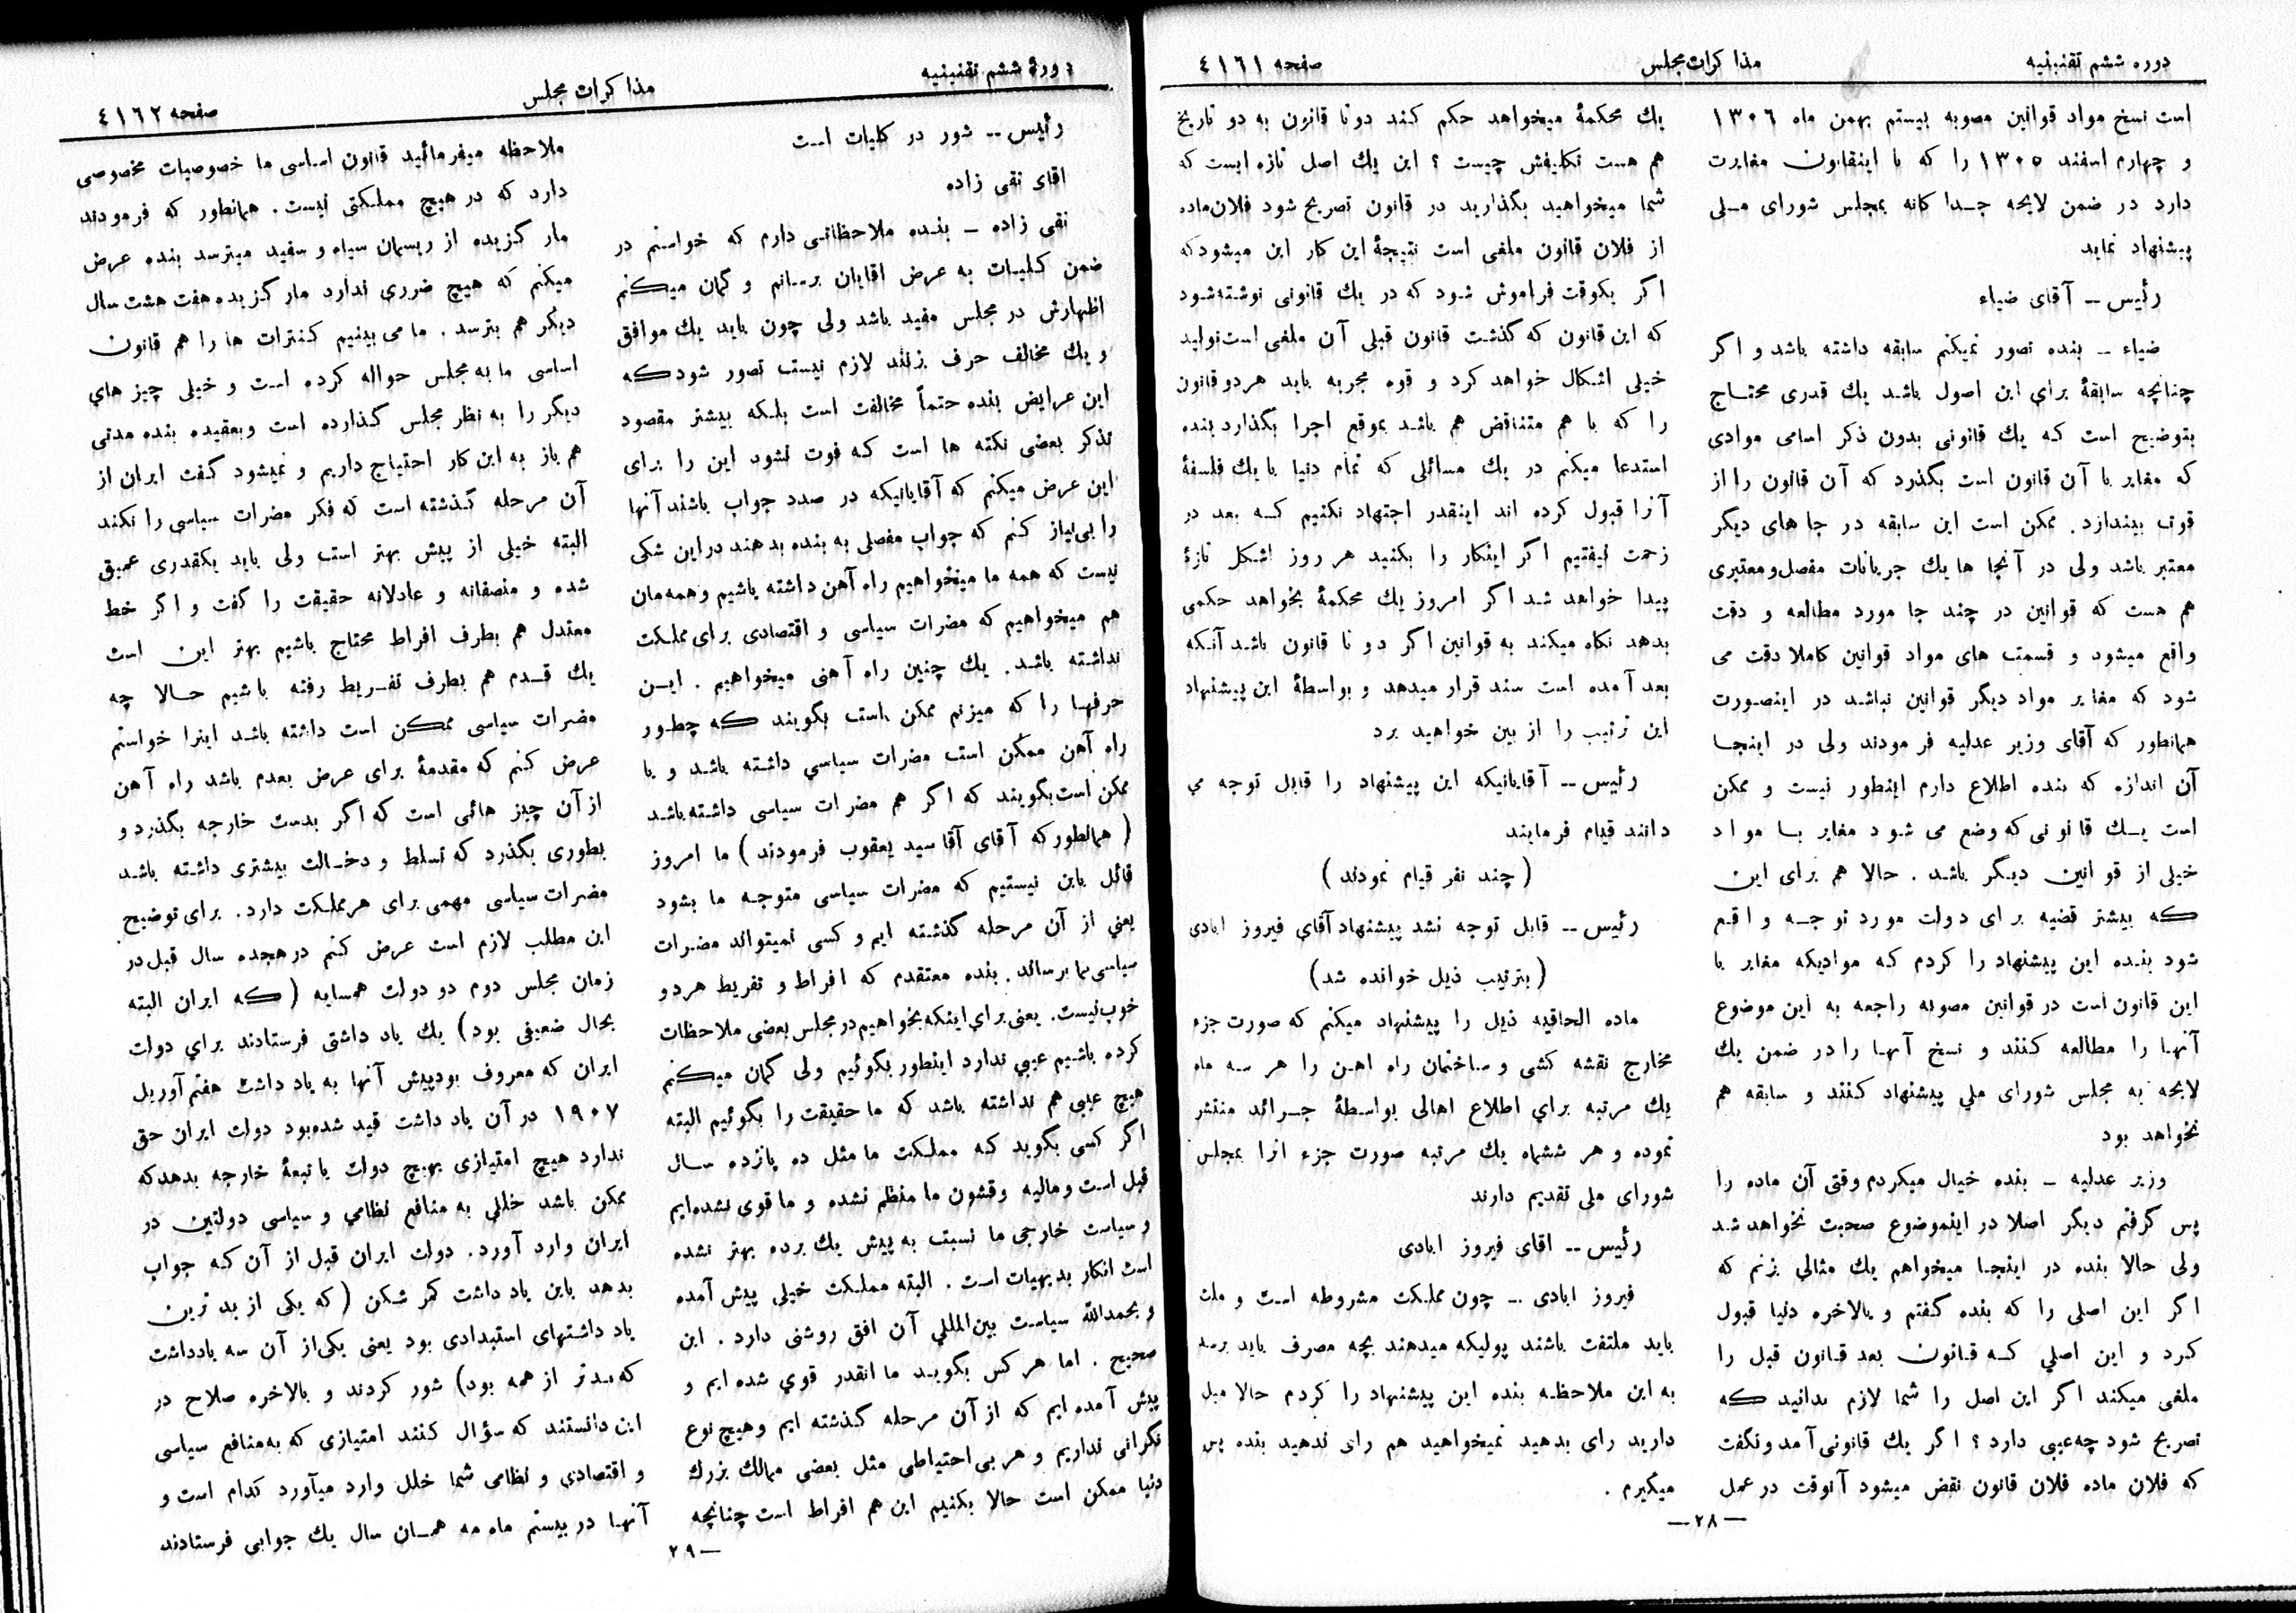 دوره ششم تقنینیه
مذاکرات مجلس
صفحه ٤١٦١
است نسخ مواد قوانین مصوبه بیستم بهمن ماه ١٣٠٦
و چهارم اسفند ١٣٠٥ را که با اینقانون مغایرت
دارد در ضمن لایحه جداگانه بمجلس شورای ملی
پیشنهاد نماید
رئیس -- آقای ضیاء
ضیاء - بنده تصور نمیکنم سابقه داشته باشد و اگر
چنانچه سابقۀ برای این اصول باشد یك قدری محتاج
بتوضیح است که یك قانونی بدون ذکر اسامی موادی
که مغایر با آن قانون است بگذرد که آن قانون را از
قوت بیندازد. ممکن است این سابقه در جاهای دیگر
معتبر باشد ولی در آنجا ها یك جریانات مفصل و معتبری
هم هست که قوانین در چند جا مورد مطالعه و دقت
واقع میشود و قسمت های مواد قوانین کاملا دقت می
شود که مغایر مواد دیگر قوانین نباشد در اینصورت
همانطور که آقای وزیر عدلیه فرمودند ولی در اینجا
آن اندازه که بنده اطلاع دارم اینطور نیست و ممکن
است یك قانونی که وضع می شود مغایر با مواد
خیلی از قوانین دیگر باشد. حالا هم برای این
که بیشتر قضیه برای دولت مورد توجه واقع
شود بنده این پیشنهاد را کردم که موادیکه مغایر با
این قانون است در قوانین مصوبه راجعه به این موضوع
آنها را مطالعه کنند و نسخ آنها را در ضمن یك
لایحه به مجلس شورای ملي پیشنهاد کنند و سابقه هم
نخواهد بود
وزیر عدلیه - بنده خیال میکردم وقتی آن ماده را
پس گرفتم دیگر اصلا در اینموضوع صحبت نخواهد شد
ولی حالا بنده در اینجا میخواهم یك مثالي بزنم که
اگر این اصلی را که بنده گفتم و بالاخره دنیا قبول
کرد و این اصلي که قانون بعد قانون قبل را
ملغی میکند اگر این اصل را شما لازم بدانید که
تصریح شود چه عیبي دارد؟ اگر یك قانونی آمد و نگفت
که فلان ماده فلان قانون نقض میشود آنوقت در عمل
یك محکمۀ میخواهد حکم کند دوتا قانون به دو تاریخ
هم هست تکلیفش چیست؟ این یك اصل تازه ایست که
شما میخواهید بگذارید در قانون تصریح شود فلان ماده
از فلان قانون ملغی است نتیجۀ این کار این میشود که
اگر یکوقت فراموش شود که در یك قانونی نوشته شود
که این قانون که گذشت قانون قبلی آن ملغی است تولید
خیلی اشکال خواهد کرد و قوه مجریه باید هر دو قانون
را که با هم متناقض هم باشد بموقع اجرا بگذارد بنده
استدعا میکنم در یك مسائلی که تمام دنیا با یك فلسفۀ
آنرا قبول کرده اند اینقدر اجتهاد نکنیم که بعد در
زحمت نیفتیم اگر اینکار را بکنید هر روز اشکل تازۀ
پیدا خواهد شد اگر امروز یك محکمۀ بخواهد حکمی
بدهد نگاه میکند به قوانین اگر دو تا قانون باشد آنکه
بعد آمده است سند قرار میدهد و بواسطۀ این پیشنهاد
این ترتیب را از بین خواهید برد
رئیس -- آقایانیکه این پیشنهاد را قابل توجه می
دانند قیام فرمایند
( چند نفر قیام نمودند )
رئیس -- قابل توجه نشد پیشنهاد آقاي فیروز ابادی
( بترتیب ذیل خوانده شد)
ماده الحاقیه ذیل را پیشنهاد میکنم که صورت جزء
مخارج نقشه کشی و ساختمان راه اهن را هر سه ماه
یك مرتبه براي اطلاع اهالی بواسطۀ جرائد منتشر
نموده و هر ششماه یك مرتبه صورت جزء انرا بمجلس
شورای ملی تقدیم دارند
رئیس -- اقای فیروز ابادی
فیروز ابادی - چون مملکت مشروطه است و ملت
باید ملتفت باشند پولیکه میدهند بچه مصرف باید برسد
به این ملاحظه بنده این پیشنهاد را کردم حالا میل
دارید رای بدهید نمیخواهید هم رای ندهید بنده پس
میگیرم .
—٢٨—
دورۀ ششم تقنینیه
مذاکرات مجلس
صفحه ٤١٦٢
رئیس -- شور در کلیات است
اقای تقی زاده
تقی زاده - بنده ملاحظاتی دارم که خواستم در
ضمن کلیات به عرض اقایان برسانم و گمان میکنم
اظهارش در مجلس مفید باشد ولی چون باید یك موافق
و یك مخالف حرف بزند لازم نیست تصور شود که
این عرایض بنده حتماً مخالفت است بلکه بیشتر مقصود
تذکر بعضی نکته ها است که فوت نشود این را برای
این عرض میکنم که آقایانیکه در صدد جواب باشند آنها
را بی نیاز کنم که جواب مفصلی به بنده بدهند در این شکی
نیست که همه ما میخواهیم راه آهن داشته باشیم و همه مان
هم میخواهیم که مضرات سیاسی و اقتصادی برای مملکت
نداشته باشد. یك چنین راه آهنی میخواهیم. این
حرفها را که میزنم ممکن است بگویند که چطور
راه آهن ممکن است مضرات سیاسي داشته باشد و یا
ممکن است بگویند که اگر هم مضرات سیاسی داشته باشد
( همانطور که آقای آقا سید یعقوب فرمودند ) ما امروز
قائل باین نیستیم که مضرات سیاسی متوجه ما بشود
یعني از آن مرحله گذشته ایم و کسی نمیتواند مضرات
سیاسی بما برساند. بنده معتقدم که افراط و تفریط هر دو
خوب نیست. یعنی براي اینکه بخواهیم در مجلس بعضی ملاحظات
کرده باشیم عیبي ندارد اینطور بگوئیم ولی گمان میکنم
هیچ عیبی هم نداشته باشد که ما حقیقت را بگوئیم البته
اگر کسی بگوید که مملکت ما مثل ده پانزده سال
قبل است و مالیه و قشون ما منظم نشده و ما قوی نشده ایم
و سیاست خارجی ما نسبت به پیش یك برده بهتر نشده
است انکار بدیهیات است. البته مملکت خیلی پیش آمده
و بحمدالله سیاست بین المللي آن افق روشنی دارد. این
صحیح. اما هر کس بگوید ما انقدر قوي شده ایم و
پیش آمده ایم که از آن مرحله گذشته ایم و هیچ نوع
نگرانی نداریم و هر بی احتیاطی مثل بعضی ممالك بزرك
دنیا ممکن است حالا بکنیم این هم افراط است چنانچه
ملاحظه میفرمائید قانون اساسی ما خصوصیات مخصوصی
دارد که در هیچ مملکتی نیست. همانطور که فرمودند
مار گزیده از ریسمان سیاه و سفید میترسد بنده عرض
میکنم که هیچ ضرری ندارد مار گزیده هفت هشت سال
دیگر هم بترسد. ما می بینیم کنترات ها را هم قانون
اساسی ما به مجلس حواله کرده است و خیلی چیز های
دیگر را به نظر مجلس گذارده است و بعقیده بنده مدتی
هم باز به این کار احتیاج داریم و نمیشود گفت ایران از
آن مرحله گذشته است که فکر مضرات سیاسی را نکند
البته خیلی از پیش بهتر است ولی باید یکقدری عمیق
شده و منصفانه و عادلانه حقیقت را گفت و اگر خط
معتدل هم بطرف افراط محتاج باشیم بهتر این است
یك قدم هم بطرف تفریط رفته باشیم حالا چه
مضرات سیاسی ممکن است داشته باشد اینرا خواستم
عرض کنم که مقدمۀ برای عرض بعدم باشد راه آهن
از آن چیز هائی است که اگر بدست خارجه بگذرد و
بطوری بگذرد که تسلط و دخالت بیشتری داشته باشد
مضرات سیاسی مهمی برای هر مملکت دارد. برای توضیح
این مطلب لازم است عرض کنم در هجده سال قبل در
زمان مجلس دوم دو دولت همسایه ( که ایران البته
بحال ضعیفی بود) یك یاد داشتی فرستادند برای دولت
ایران که معروف بود پیش آنها به یاد داشت هفتم آوریل
١٩٠٧ در آن یاد داشت قید شده بود دولت ایران حق
ندارد هیچ امتیازی بهیچ دولت یا تبعۀ خارجه بدهد که
ممکن باشد خللی به منافع نظامی و سیاسی دولتین در
ایران وارد آورد. دولت ایران قبل از آن که جواب
بدهد باین یاد داشت کمر شکن ( که یکی از بد ترین
یاد داشتهای استبدادی بود یعنی یکی از آن سه یادداشت
که بدتر از همه بود) شور کردند و بالاخره صلاح در
این دانستند که سؤال کنند امتیازی که به منافع سیاسی
و اقتصادی و نظامی شما خلل وارد میآورد کدام است و
آنها در بیستم ماه مه همان سال یك جوابی فرستادند
—٢٩